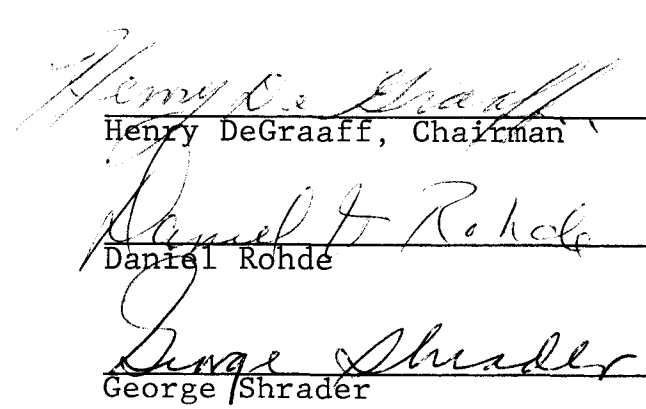 Henry De Graaff
Henry DeGraaff, Chairman
Daniel G Rohde
Daniel Rohde
George Shrader
George Shrader